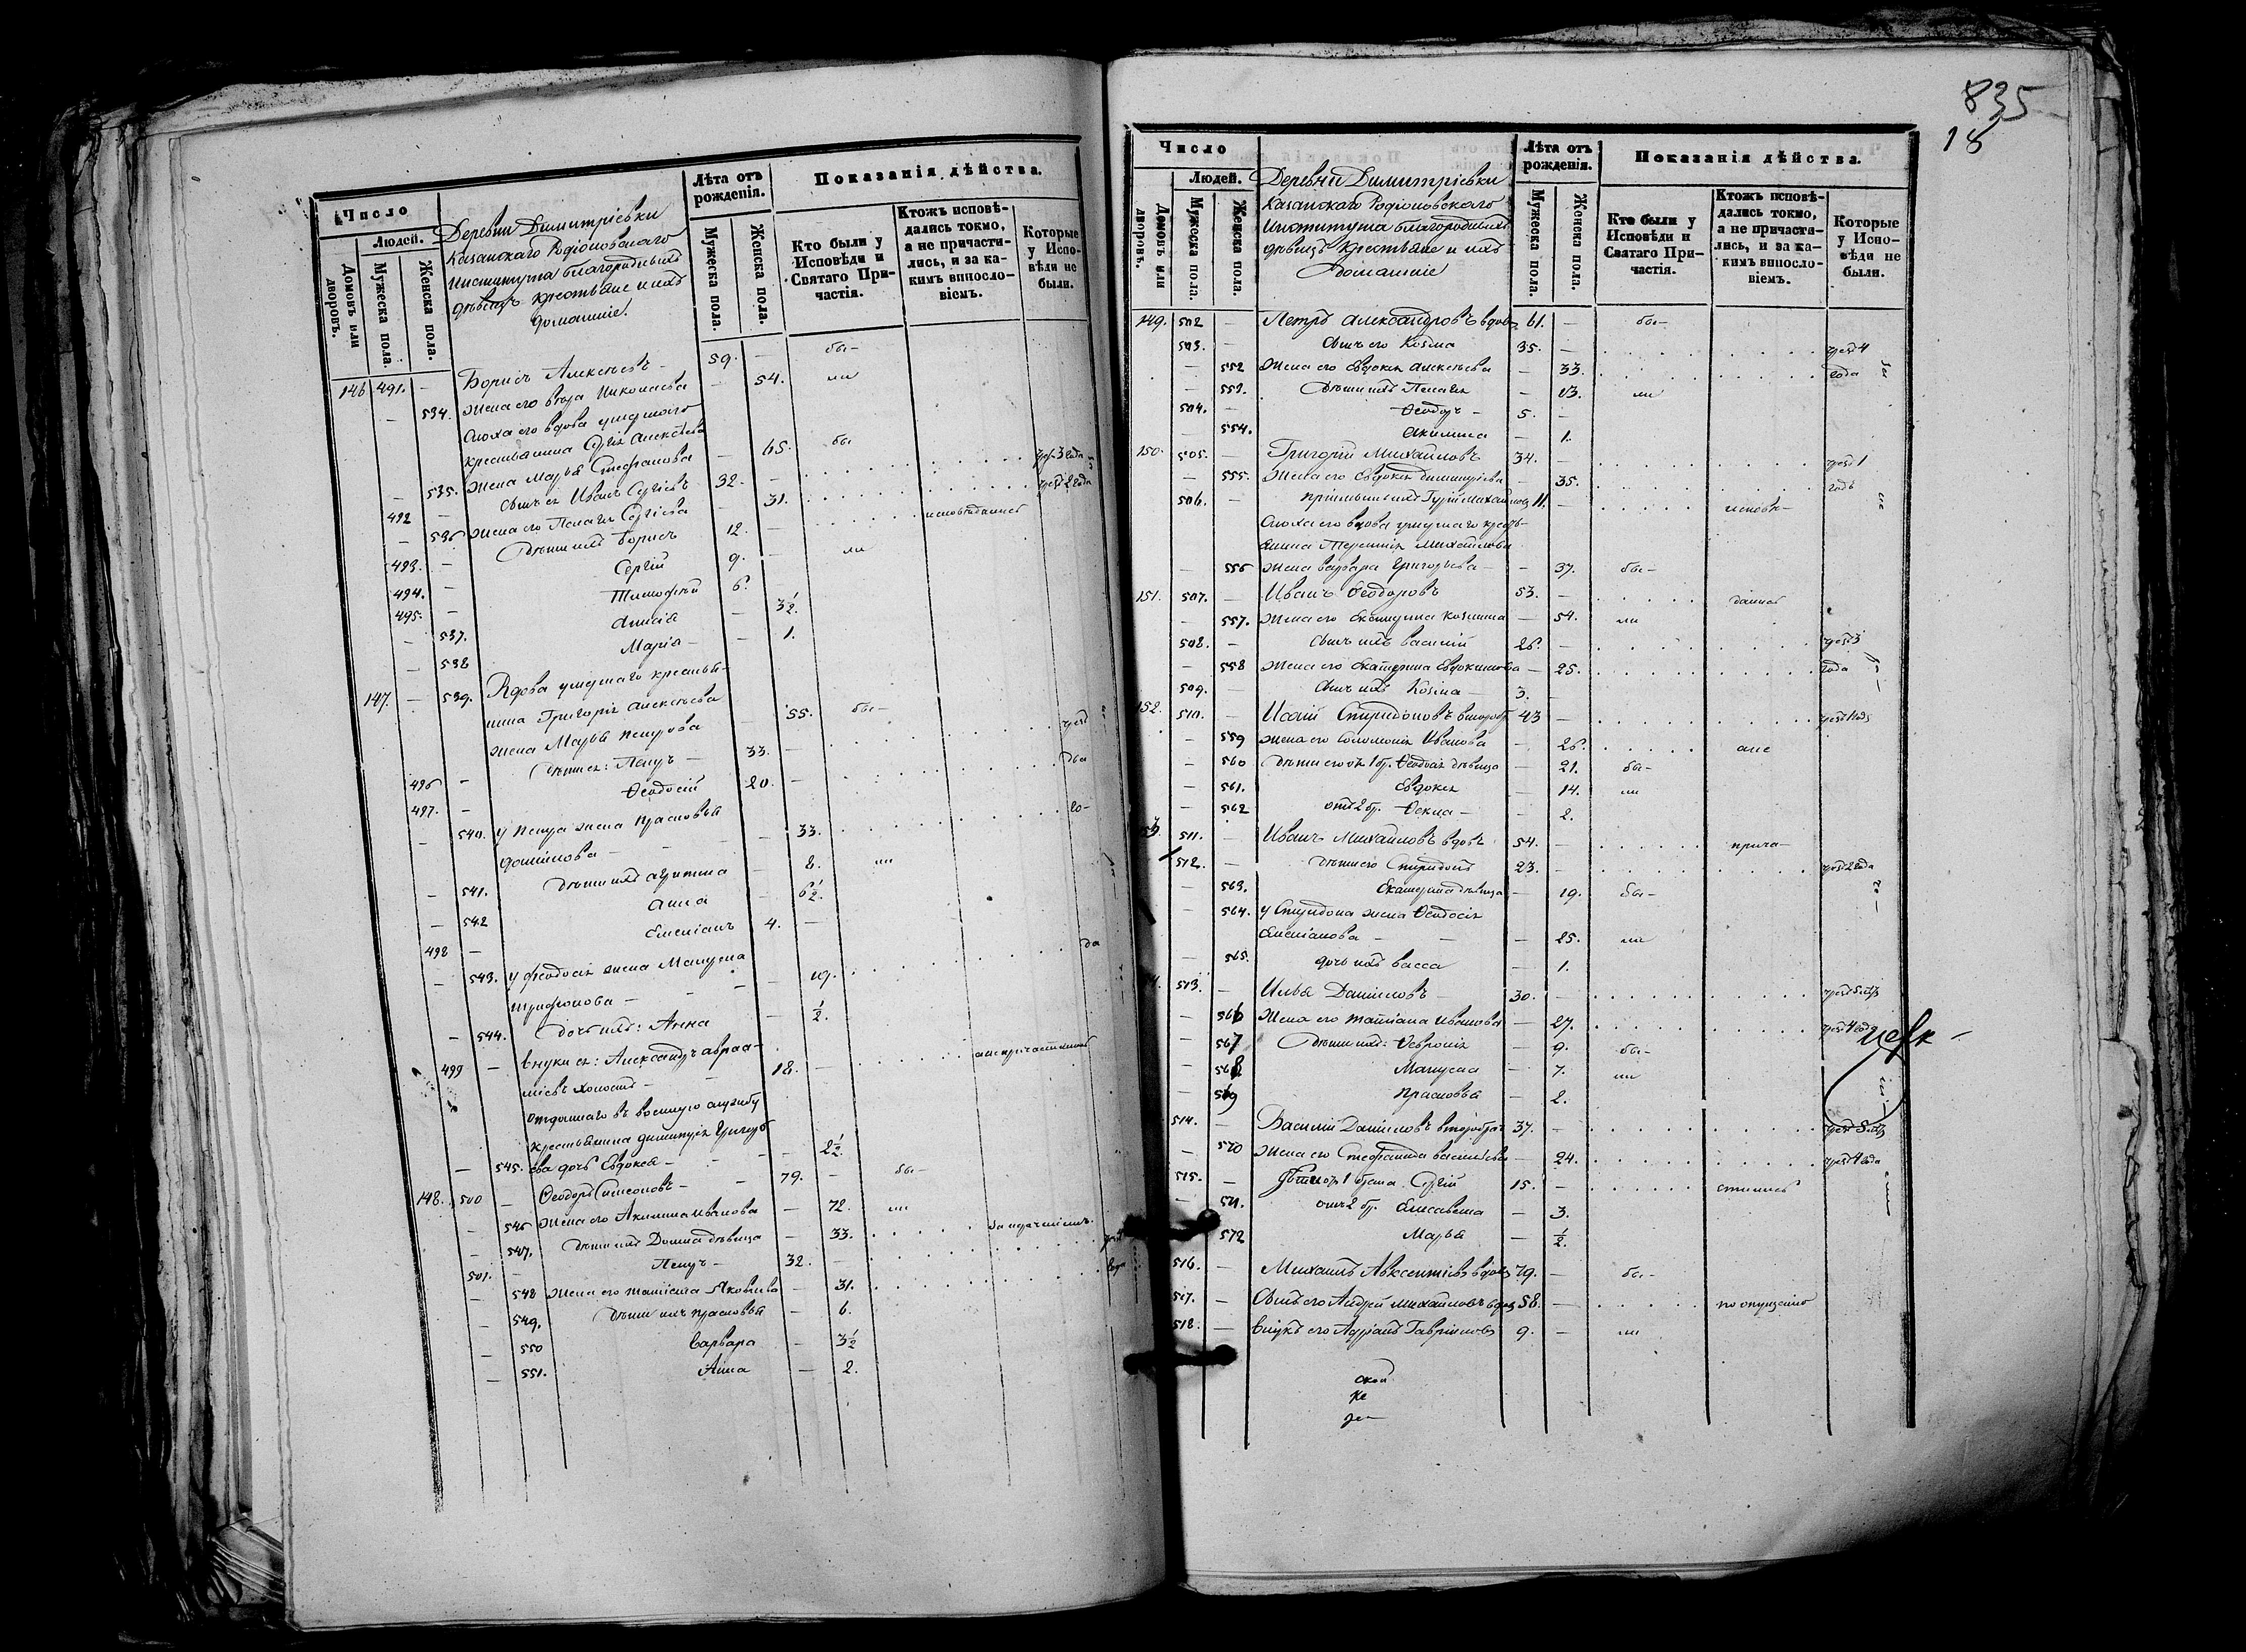 Число
Людей.
Домовъ или дворовъ.
Мужеска пола.
Женска пола.
Деревни Димитріевки
Казанскаго Родіоновскаго
Института благородныхъ
дѣвицъ крестьяне и ихъ
домашніе.
Лѣта отъ рожденія.
Мужеска пола.
Женска пола.
Показанія дѣйства.
Кто были у Исповѣди и Святаго Причастія.
Ктожъ исповѣдались токмо, а не причастились, и за какимъ винословіемъ.
Которые у Исповѣди не были.
146 491. — Борисъ Алексѣевъ — 59. — бы-
— 534. Жена его Вѣра Николаева — 54. ли
Сноха его вдова умершаго
крестьянина Сергія Алексѣева
— 535. жена Марья Стефанова — 65. бы
492 — Сынъ ея Иванъ Сергіевъ 32. — чрез 3 года
— 536 Жена его Пелагія Сергіева — 31. чрез 2 года
493. — Дѣти ихъ Борисъ 12. — исповѣдались
494. — Сергій 9. — ли
495. — Тимофей 6.
— 537. Анисія — 3½.
— 538 Марія — 1.
147. — 539. Вдова умершаго крестья-
нина Григорія Алексѣева
жена Марья Петрова — 55. бы-
496 — Дѣти ея: Петръ — 33. — чрез
497. — Ѳеодосій 20. — два
— 540. У Петра жена Прасковья
Данилова — 33. го-
— 541. Дѣти ихъ Агрипина — 8. ли
— 542 Анна — 6½.
498 — Емеліанъ 4. —
— 543. У Ѳеодосія жена Матрена
Трифонова — 19. да
— 544. Дочь ихъ: Анна — ½.
499 — Внуки ея: Александръ Авраа-
міевъ холостъ — 18. — а не причастились
Отданнаго въ военную службу
крестьянина Димитрія Григорь
— 545. ева дочь Евдокея — 2½.
148. 500 — Ѳеодоръ Симеоновъ — 79. — бы-
— 546 Жена его Акилина Иванова — 72. ли
— 547. Дѣти ихъ Домна дѣвица — 33. за отлучкою
501. — Петръ — 32. — чрез
— 548 Жена его Татіана Яковлева — 31. года
— 549. Дѣти ихъ Прасковья — 6.
— 550 Варвара — 3½
— 551. Анна — 2.
835
18
Число
Людей.
Домовъ или дворовъ.
Мужеска пола.
Женска пола.
Деревни Димитріевки
Казанскаго Родіоновскаго
Института благородныхъ
дѣвицъ крестьяне и ихъ
домашніе
Лѣта отъ рожденія.
Мужеска пола.
Женска пола.
Показанія дѣйства.
Кто были у Исповѣди и Святаго Причастія.
Ктожъ исповѣдались токмо, а не причастились, и за какимъ винословіемъ.
Которые у Исповѣди не были.
149. 502 — Петръ Александровъ вдовъ 61. — бы-
503. — Сынъ его Козма 35. — чрез 4
— 552 Жена его Евдокія Алексѣева — 33. года
— 553. Дѣти ихъ Пелагія — 13. ли
504. — Ѳеодоръ — 5. —
— 554. Акилина — 1.
150. 505. — Григорій Михайловъ 34. — чрез 1
— 555. Жена его Евдокія Димитріева — 35. годъ
506. — Пріемышъ ихъ Гурій Михайловъ 11. — исповѣ-
Сноха его вдова умершаго кресть-
янина Терентія Михайлова
— 556 жена Варвара Григорьева — 37. бы-
151. 507. — Иванъ Ѳеодоровъ 53. — дались
— 557. Жена его Екатерина Козмина — 54. ли
508. — Сынъ ихъ Василій 26. — чрез 3
— 558 Жена его Екатерина Евдокимова — 25. года
509. Сынъ ихъ Козма 3. —
152. 510. — Исаій Спиридоновъ второбр 43 — чрез 1 годъ
— 559 Жена его Соломонія Иванова — 26. а не
— 560 Дѣти его отъ 1 бр. Ѳеодосія дѣвица — 21. бы-
— 561. Евдокія — 14. ли
— 562 отъ 2 бр. Ѳекла — 2.
153. 511. — Иванъ Михайловъ вдовъ 54. — прича-
512. — Дѣти его Спиридонъ 23. — чрез 2 года
— 563. Екатерина дѣвица — 19. бы-
— 564. У Спиридона жена Ѳеодосія
Емеліанова — 25. ли
— 565. дочь ихъ Васса — 1.
513. — Илья Даниловъ — 30. — чрез 5 лѣтъ
— 566 Жена его Татіана Иванова — 27. чрез 4 года
— 567 Дѣти ихъ: Ѳевронія — 9. бы-
— 568 Матрена — 7. ли
— 569 Прасковья — 2.
514. — Василій Даниловъ второбрач 37. — чрез 5 лѣтъ
— 570 Жена его Стефанида Васильева — 24. чрез 4 года
515. — Дѣти отъ 1 брака Сергій 15. — стились
— 571. отъ 2 бр. Елисавета — 3.
— 572 Марья — ½.
516. — Михаилъ Авксентіевъ вдовъ 79. — бы-
517. — Сынъ его Андрей Михайловъ вдовъ 58. — по опущенію
518. — Внукъ его Адріанъ Гавриловъ 9. — ли